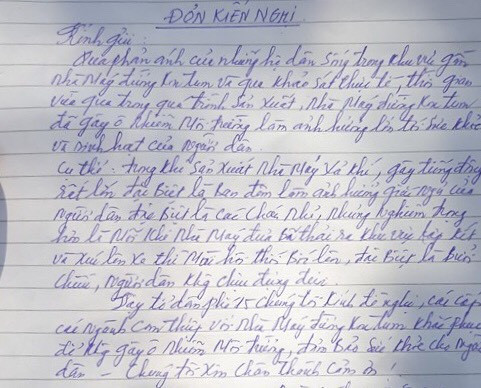 ĐƠN KIẾN NGHỊ
Kính gửi:
Qua phản ánh của những hộ dân sống trong khu vực gần
nhà máy đường Kon tum và qua khảo sát thực tế, thời gian
vừa qua trong quá trình sản xuất, nhà máy đường Kon tum
đã gây ô nhiễm môi trường làm ảnh hưởng lớn tới sức khỏe
và sinh hoạt của người dân.
Cụ thể: trong khi sản xuất nhà máy xả khí, gây tiếng động
rất lớn đặc biệt là ban đêm làm ảnh hưởng giấc ngủ của
người dân đặc biệt là các cháu nhỏ, nhưng nghiêm trọng
hơn là mỗi khi nhà máy đưa bã thải ra khu vực tập kết
và xúc lên xe thì mùi hôi thối bốc lên, đặc biệt là buổi
chiều, người dân khg chịu đựng được.
Thay tổ dân phố 15 chúng tôi kính đề nghị, các cấp
các ngành can thiệp với nhà máy đường Kon tum khắc phục
để khg gây ô nhiễm môi trường, đảm bảo sức khỏe cho người
dân - Chúng tôi xin chân thành cảm ơn!